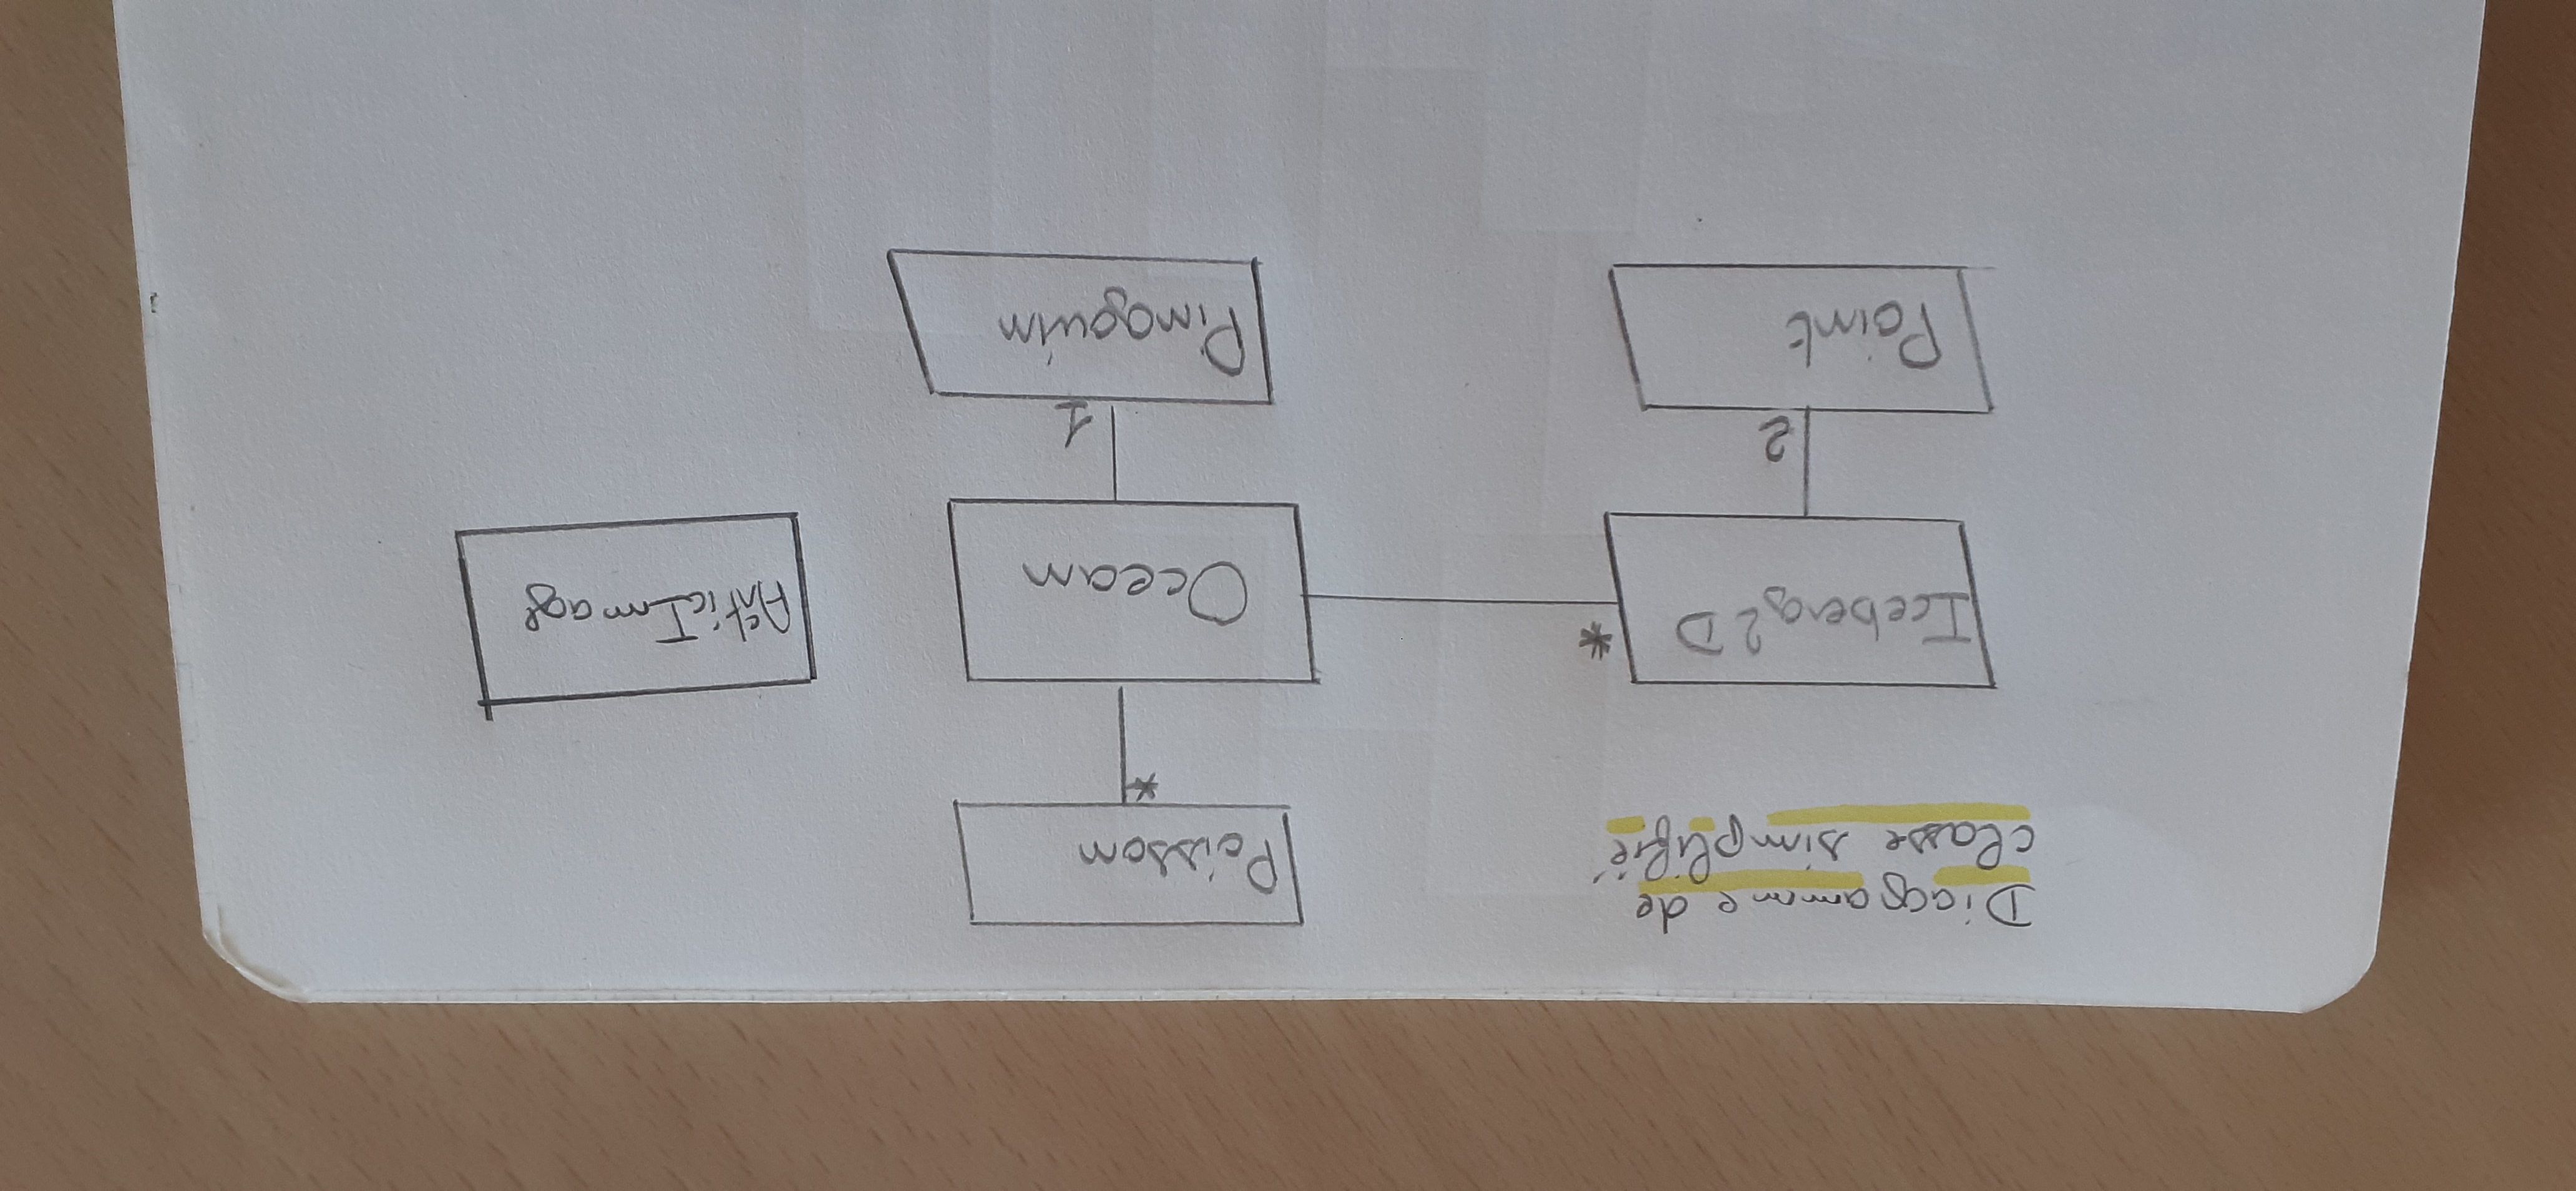 Diagramme de
classe simplifié
Poisson
*
Iceberg2D
*
Ocean
ArcticImage
2
1
Point
Pingouin